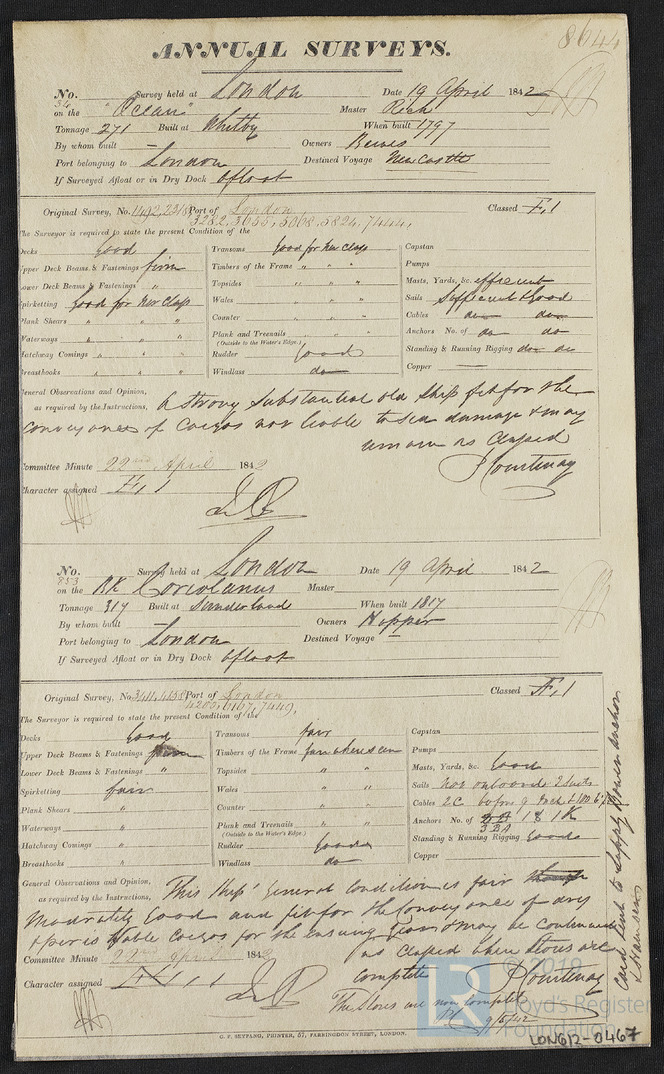 8644
ANNUAL SURVEYS.
No. 54 Survey held at London Date 19 April 1842
on the "Ocean" Master Rich
Tonnage 271 Built at Whitby When built 1797
By whom built — Owners Bewes
Port belonging to London Destined Voyage Newcastle
If Surveyed Afloat or in Dry Dock Afloat
Original Survey, No. Port of London Classed Æ, 1
3282, 3655, 5068, 5824, 7444,
The Surveyor is required to state the present Condition of the
Decks Good Transoms Good for her Class Capstan
Upper Deck Beams & Fastenings firm Timbers of the Frame " " " Pumps
Lower Deck Beams & Fastenings " Topsides " " " Masts, Yards, &c. efficient
Spirketting Good for her Class Wales " " " Sails Sufficient & Good
Plank Shears " " " Counter " " " Cables do do
Waterways " " " Plank and Treenails " " " Anchors No. of do do
(Outside to the Water's Edge.)
Hatchway Comings " " " Rudder Good Standing & Running Rigging do do
Breasthooks " " " Windlass do Copper —
General Observations and Opinion,
as required by the Instructions, A strong substantial old Ship fit for the
conveyance of Cargos not liable to Sea damage & may
remain as Classed
P Courtenay
Committee Minute 22nd April 1842
Character assigned Æ, 1
No. 853 Survey held at London Date 19 April 1842
on the BK Coriolanus Master
Tonnage 317 Built at Sunderland When built 1817
By whom built — Owners Hopper
Port belonging to London Destined Voyage —
If Surveyed Afloat or in Dry Dock Afloat
Original Survey, No. Port of London Classed Æ, 1
4200, 6167, 7449,
The Surveyor is required to state the present Condition of the
Decks Good Transoms fair Capstan
Upper Deck Beams & Fastenings firm Timbers of the Frame fair where seen Pumps
Lower Deck Beams & Fastenings " Topsides " " Masts, Yards, &c. Good
Spirketting fair Wales " " Sails Not onboard 2 Suits
Plank Shears " Counter " " Cables 2C
Waterways " Plank and Treenails " " Anchors No. of 3BA 1S 1K
(Outside to the Water's Edge.) 3BA
Hatchway Comings " Rudder Good Standing & Running Rigging Good
Breasthooks " Windlass do Copper
General Observations and Opinion,
as required by the Instructions, This Ships General Condition is fair
Moderately Good and fit for the Conveyance of dry
& perishable Cargos for the Ensuing Year & may be continued
as Classed when Stores are
complete P Courtenay
Committee Minute 22nd April 1842
Character assigned 1
The Stores are now complete
PC 9/5/42
Card sent to Supply Bower Anchor
G. F. SEYFANG, PRINTER, 57, FARRINGDON STREET, LONDON.
© 2019
Lloyd's Register
Foundation
LON612-0467